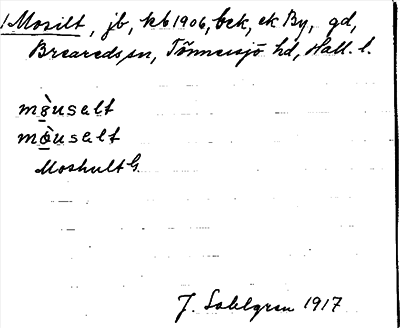 1 Mosilt, jb, kb 1906, bek, ek By, gd,
Breareds sn, Tönnersjö hd, Hall. l.
mòuselt
mòuselt
Moshult G
J. Sahlgren 1917